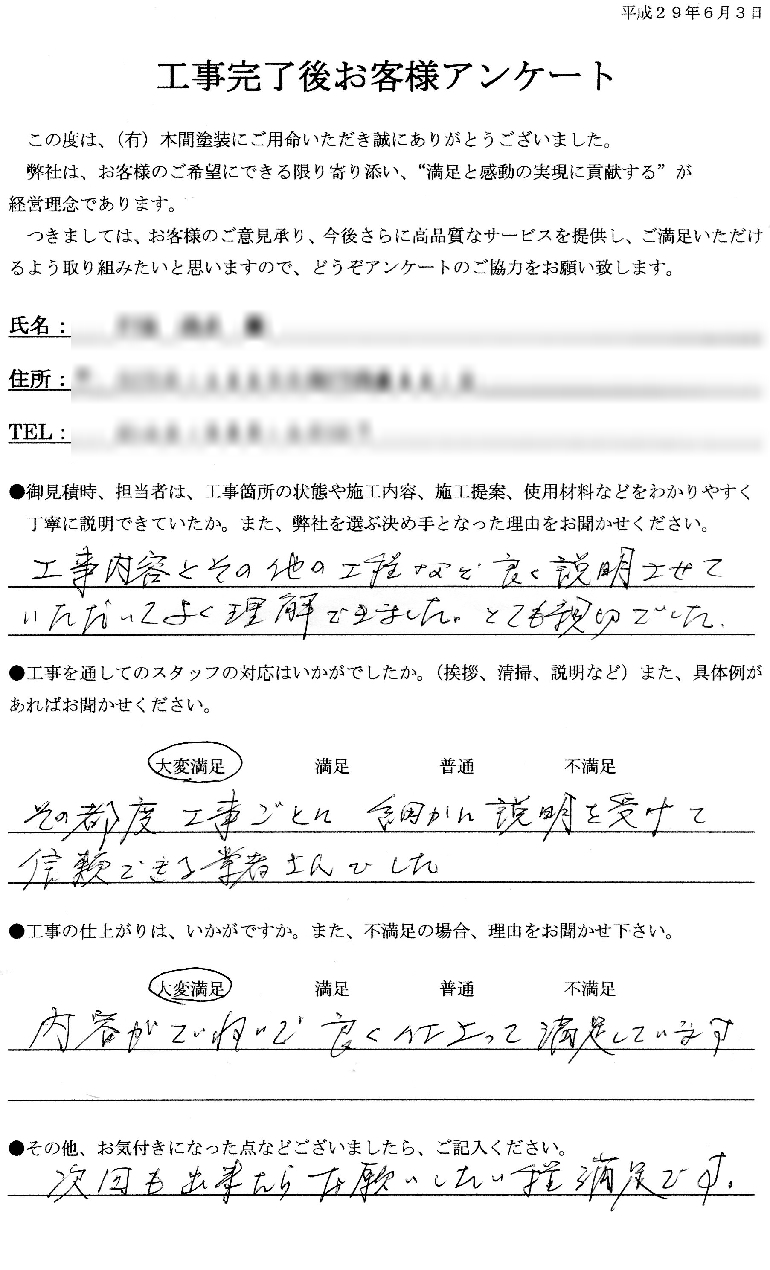 平成２９年６月３日
工事完了後お客様アンケート
この度は、（有）木間塗装にご用命いただき誠にありがとうございました。
弊社は、お客様のご希望にできる限り寄り添い、“満足と感動の実現に貢献する”が
経営理念であります。
つきましては、お客様のご意見承り、今後さらに高品質なサービスを提供し、ご満足いただけ
るよう取り組みたいと思いますので、どうぞアンケートのご協力をお願い致します。
氏名：
住所：
TEL：
●御見積時、担当者は、工事箇所の状態や施工内容、施工提案、使用材料などをわかりやすく
丁寧に説明できていたか。また、弊社を選ぶ決め手となった理由をお聞かせください。
工事内容とその他の工程など良く説明させて
いただいてよく理解できました。とても親切でした.
●工事を通してのスタッフの対応はいかがでしたか。（挨拶、清掃、説明など）また、具体例が
あればお聞かせください。
大変満足 満足 普通 不満足
その都度工事ごとに細かに説明を受けて
信頼できる業者さんでした
●工事の仕上がりは、いかがですか。また、不満足の場合、理由をお聞かせ下さい。
大変満足 満足 普通 不満足
内容がていねいで良く仕上って満足しています
●その他、お気付きになった点などございましたら、ご記入ください。
次回も出来たらお願いしたい程満足です.